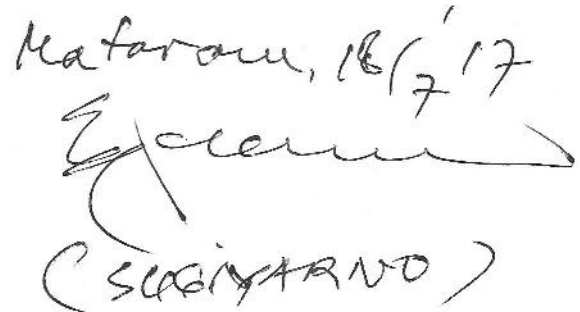 Mataram, 18/7 '17
(SUGIYARNO)